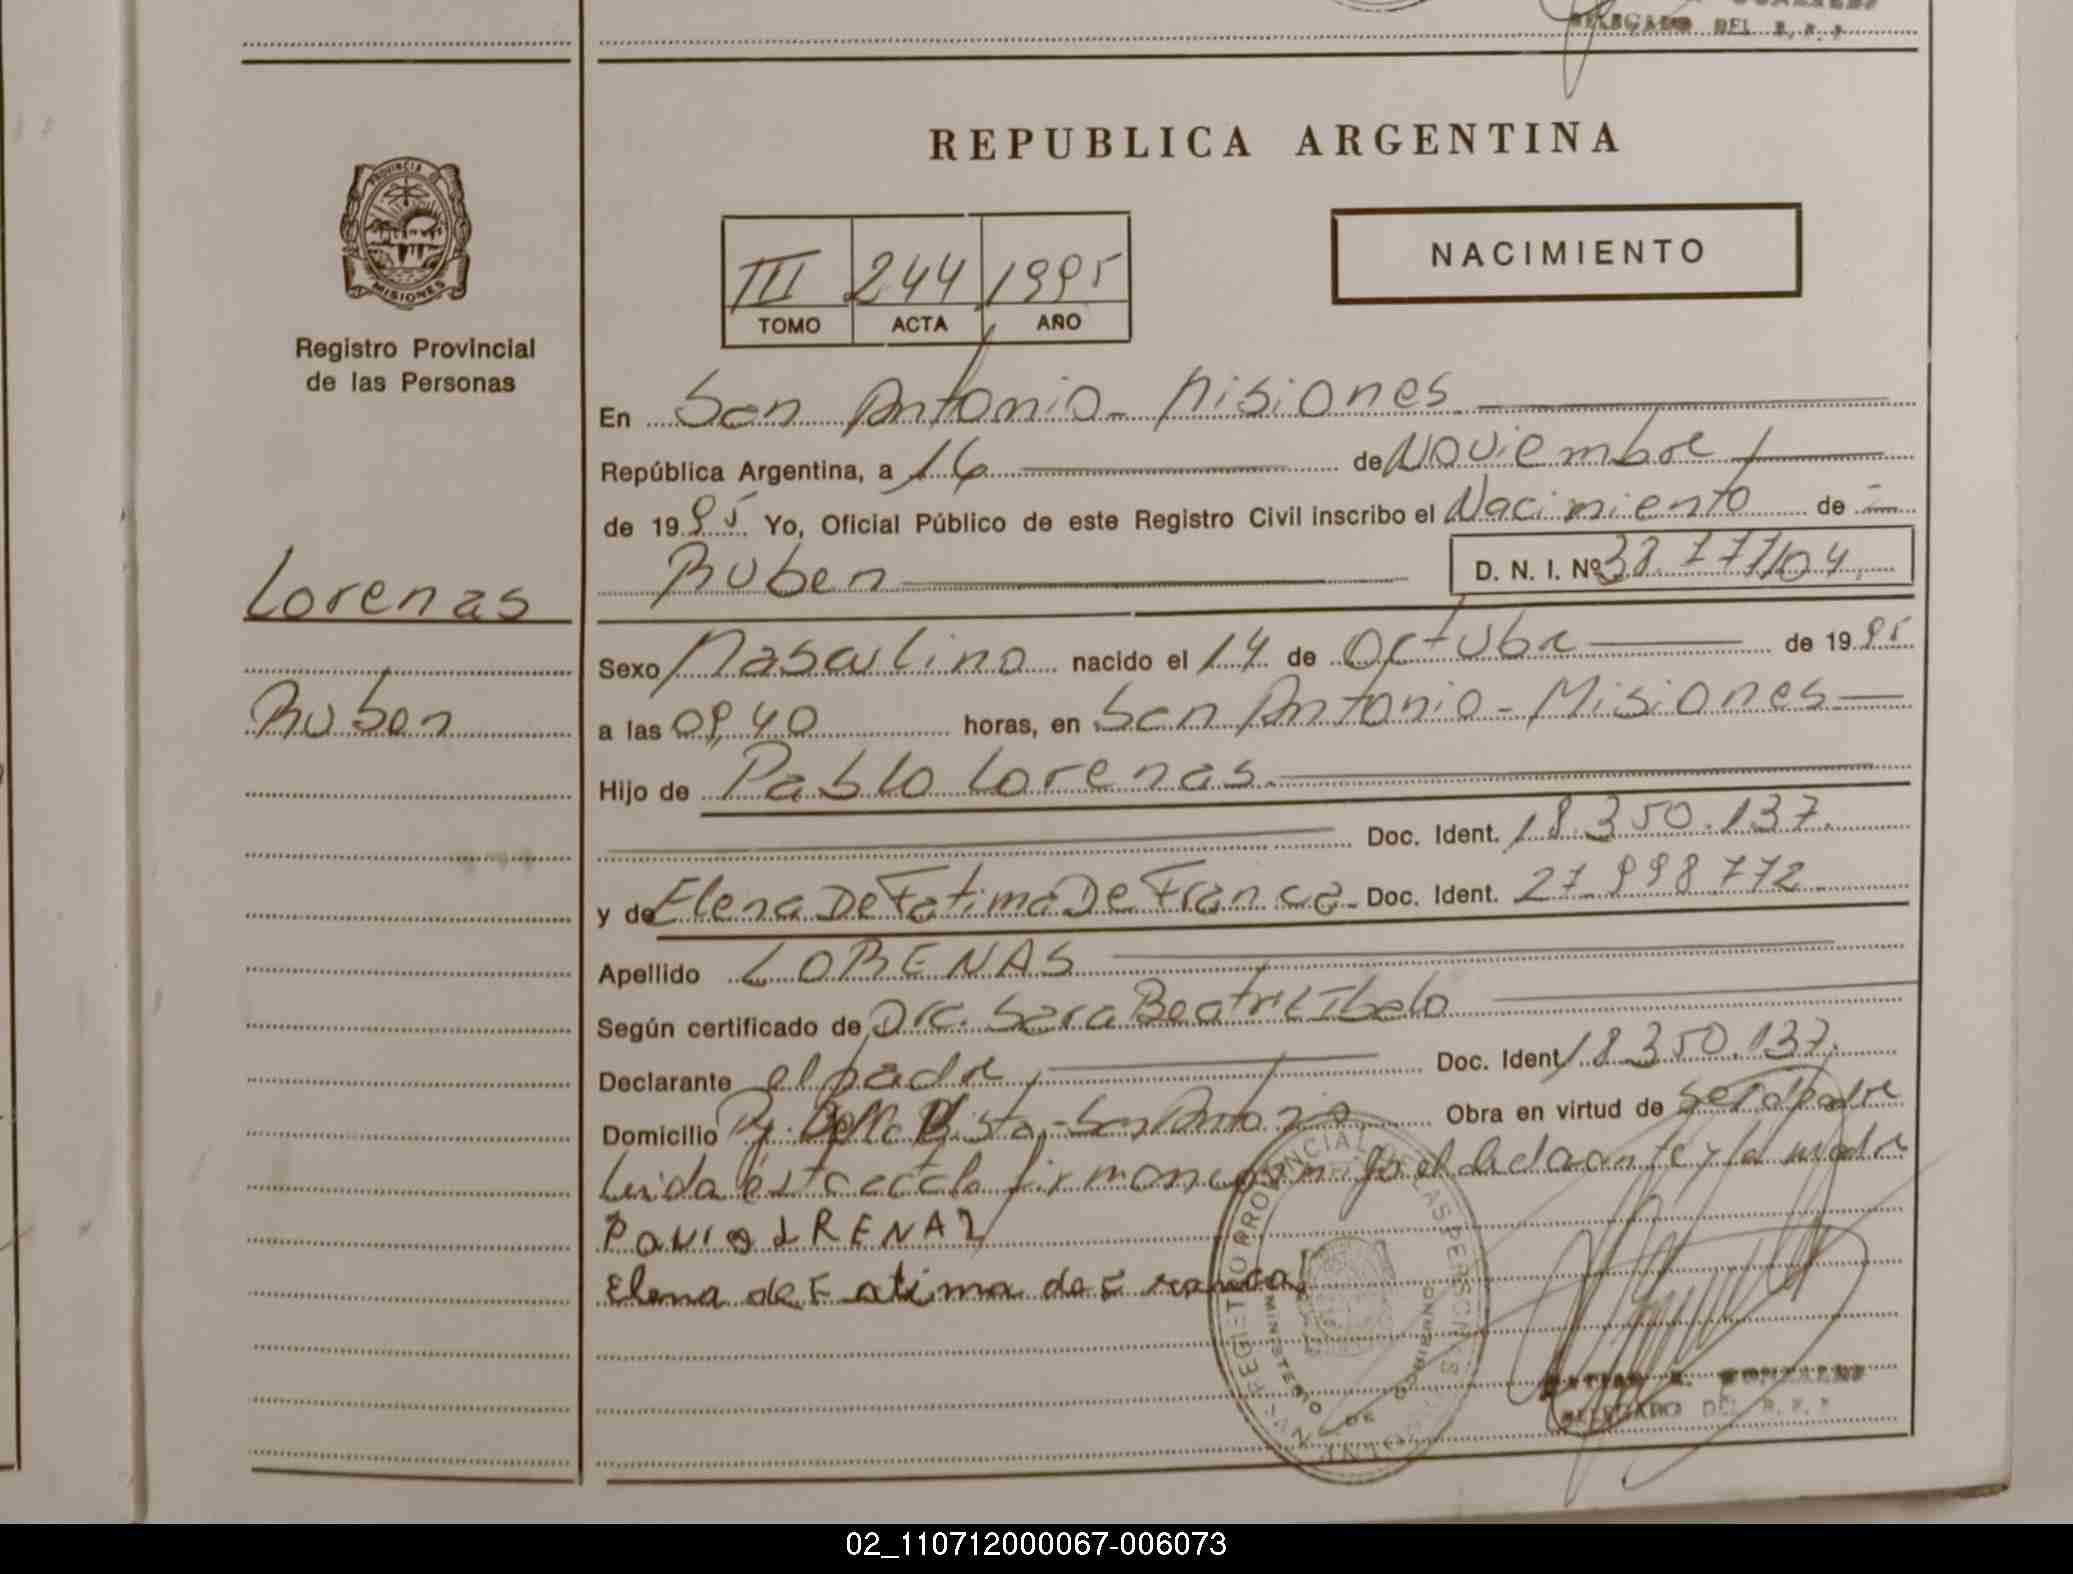 DELEGADO DEL R. P. P
REPUBLICA ARGENTINA
NACIMIENTO
III 244 1995
TOMO ACTA AÑO
PROVINCIA DE
MISIONES
Registro Provincial
de las Personas
Lorenas
Ruben
En San Antonio - Misiones
República Argentina, a 16 de Noviembre
de 1995 Yo, Oficial Público de este Registro Civil inscribo el Nacimiento de
Ruben D. N. I. Nº 38.777104
Sexo Masculino nacido el 14 de Octubre de 1995
a las 09,40 horas, en San Antonio - Misiones
Hijo de Pablo Lorenas
Doc. Ident. 18.350.137.
y de Elena De Fatima De Franca Doc. Ident. 27.998.772
Apellido LORENAS
Según certificado de Dra. Sara Beatriz
Declarante el padre Doc. Ident 18.350.137.
Domicilio Bella Vista - San Antonio Obra en virtud de ser el padre
Leida esta acta la firman el declarante y la madre
Elena de Fatima de Franca
REGISTRO PROVINCIAL DE LAS PERSONAS
MINISTERIO DE GOBIERNO
GONZALEZ
DELEGADO DEL R. P. P
02_110712000067-006073